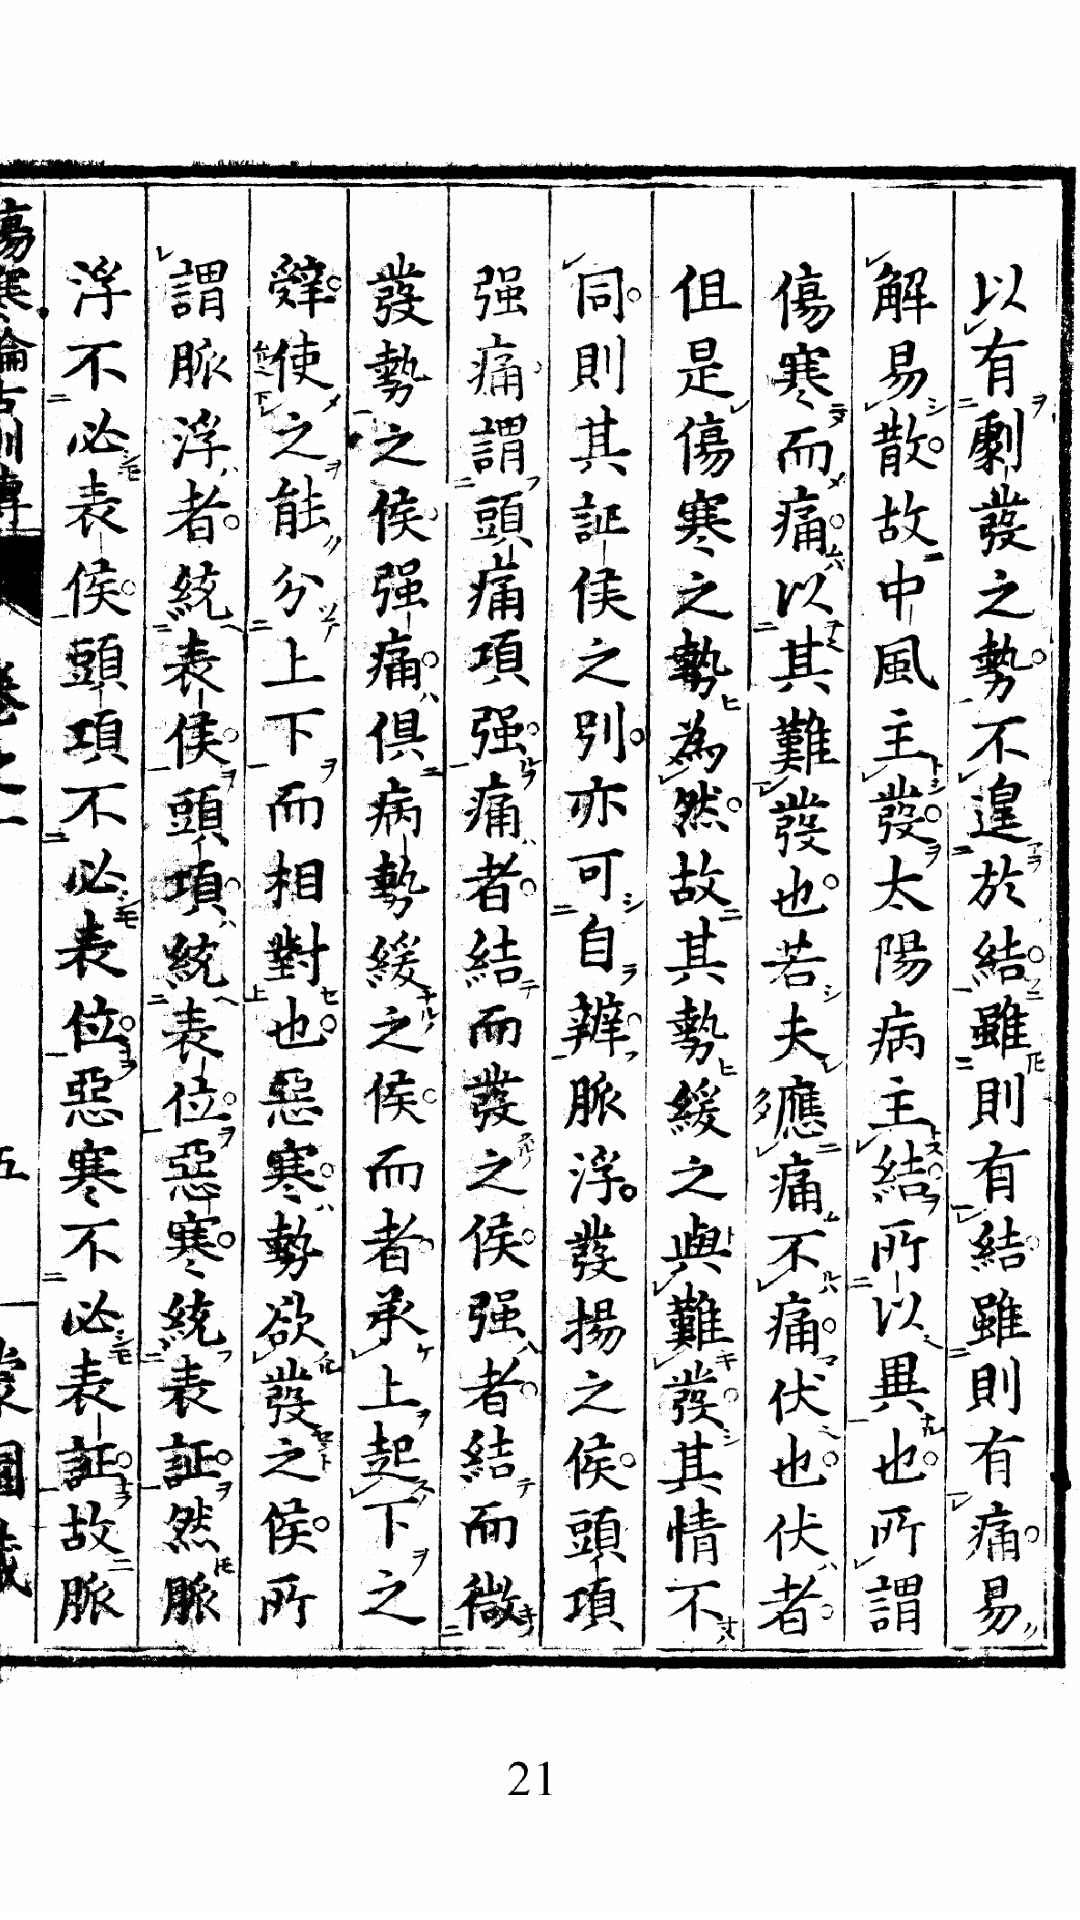 以有劇發之勢不遑於結雖則有結雖則有痛易
解易散故中風主發太陽病主結所以異也所謂
傷寒而痛以其難發也若夫應痛不痛伏也伏者
但是傷寒之勢為然故其勢緩之與難發其情不
同則其証候之別亦可自辨脈浮發揚之候頭項
强痛謂頭痛項强痛者結而發之候强者結而微
發勢之候强痛俱病勢緩之候而者承上起下之
辭使之能分上下而相對也惡寒勢欲發之候所
謂脈浮者統表候頭項統表位惡寒統表証然脈
浮不必表候頭項不必表位惡寒不必表証故脈
傷寒論古訓傳 卷之一 五
21